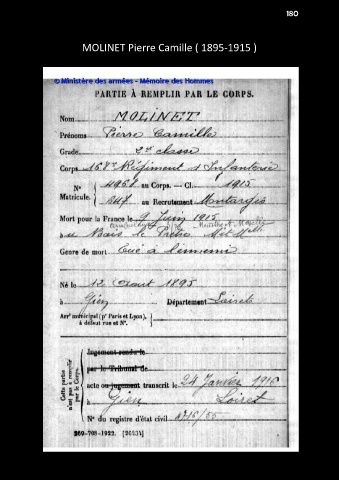 180
MOLINET Pierre Camille ( 1895-1915 )
© Ministère des armées - Mémoire des Hommes
PARTIE À REMPLIR PAR LE CORPS.
Nom MOLINET
Prénoms Pierre Camille
Grade 2e classe
Corps 167e Régiment d'Infanterie
N° Matricule. 4968 au Corps. — Cl. 1915
647 au Recrutement Montargis
Mort pour la France le 9 Juin 1915
au Bois le Prêtre
Genre de mort Tué à l'ennemi
Né le 12 Août 1895
à Gien Département Loiret
Arrt municipal (pr Paris et Lyon), à défaut rue et N°.
Cette partie n'est pas à remplir par le Corps.
Jugement rendu le
par le Tribunal de
acte ou jugement transcrit le 24 Janvier 1916
à Gien Loiret
N° du registre d'état civil
369-708-1922. [26434]